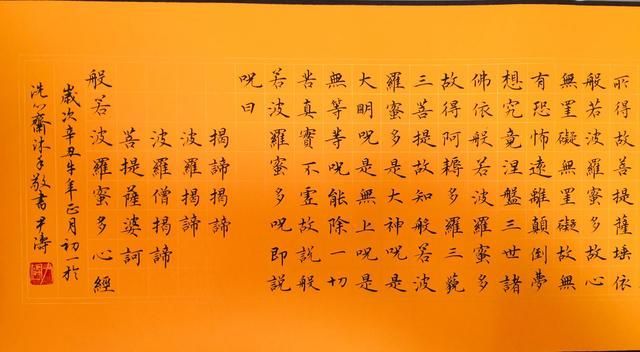 所得故菩提薩埵依
般若波羅蜜多故心
無罣礙無罣礙故無
有恐怖遠離顛倒夢
想究竟涅盤三世諸
佛依般若波羅蜜多
故得阿耨多羅三藐
三菩提故知般若波
羅蜜多是大神呪是
大明呪是無上呪是
無等等呪能除一切
苦真實不虛故説般
若波羅蜜多呪即説
呪曰
揭諦揭諦
波羅揭諦
波羅僧揭諦
菩提薩婆訶
般若波羅蜜多心經
歲次辛丑牛年正月初一於
洗心齋沐手敬書尹濤